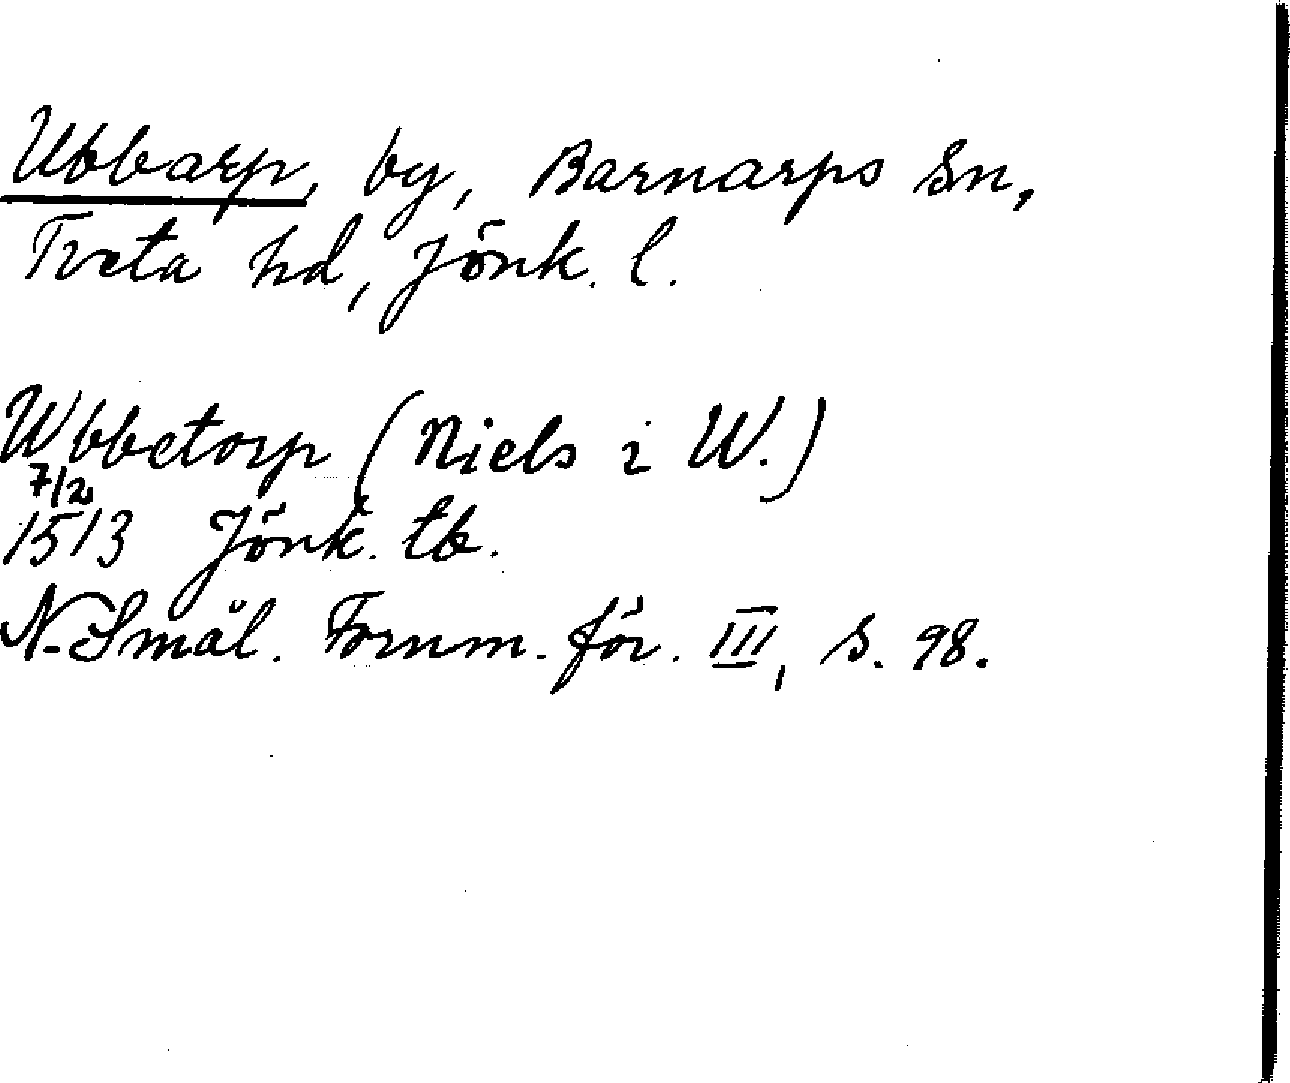 Ubbarp, by, Barnarps sn,
Tveta hd, Jönk. l.
Wbbetorp (Niels i W.)
7/2
1513 Jönk. tb.
N. Smål. Fornm. för. III, s. 98.